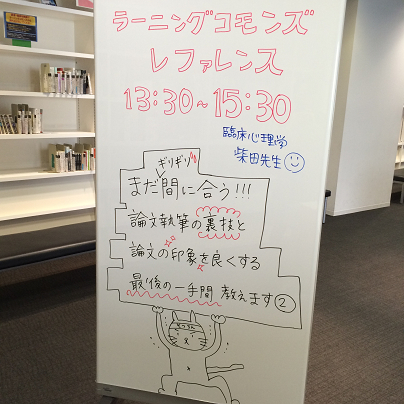 ラーニングコモンズ
レファレンス
13:30~15:30
臨床心理学
柴田先生
ギリギリ
まだ間に合う!!!
論文執筆の裏技と
論文の印象を良くする
最後の一手間 教えます②